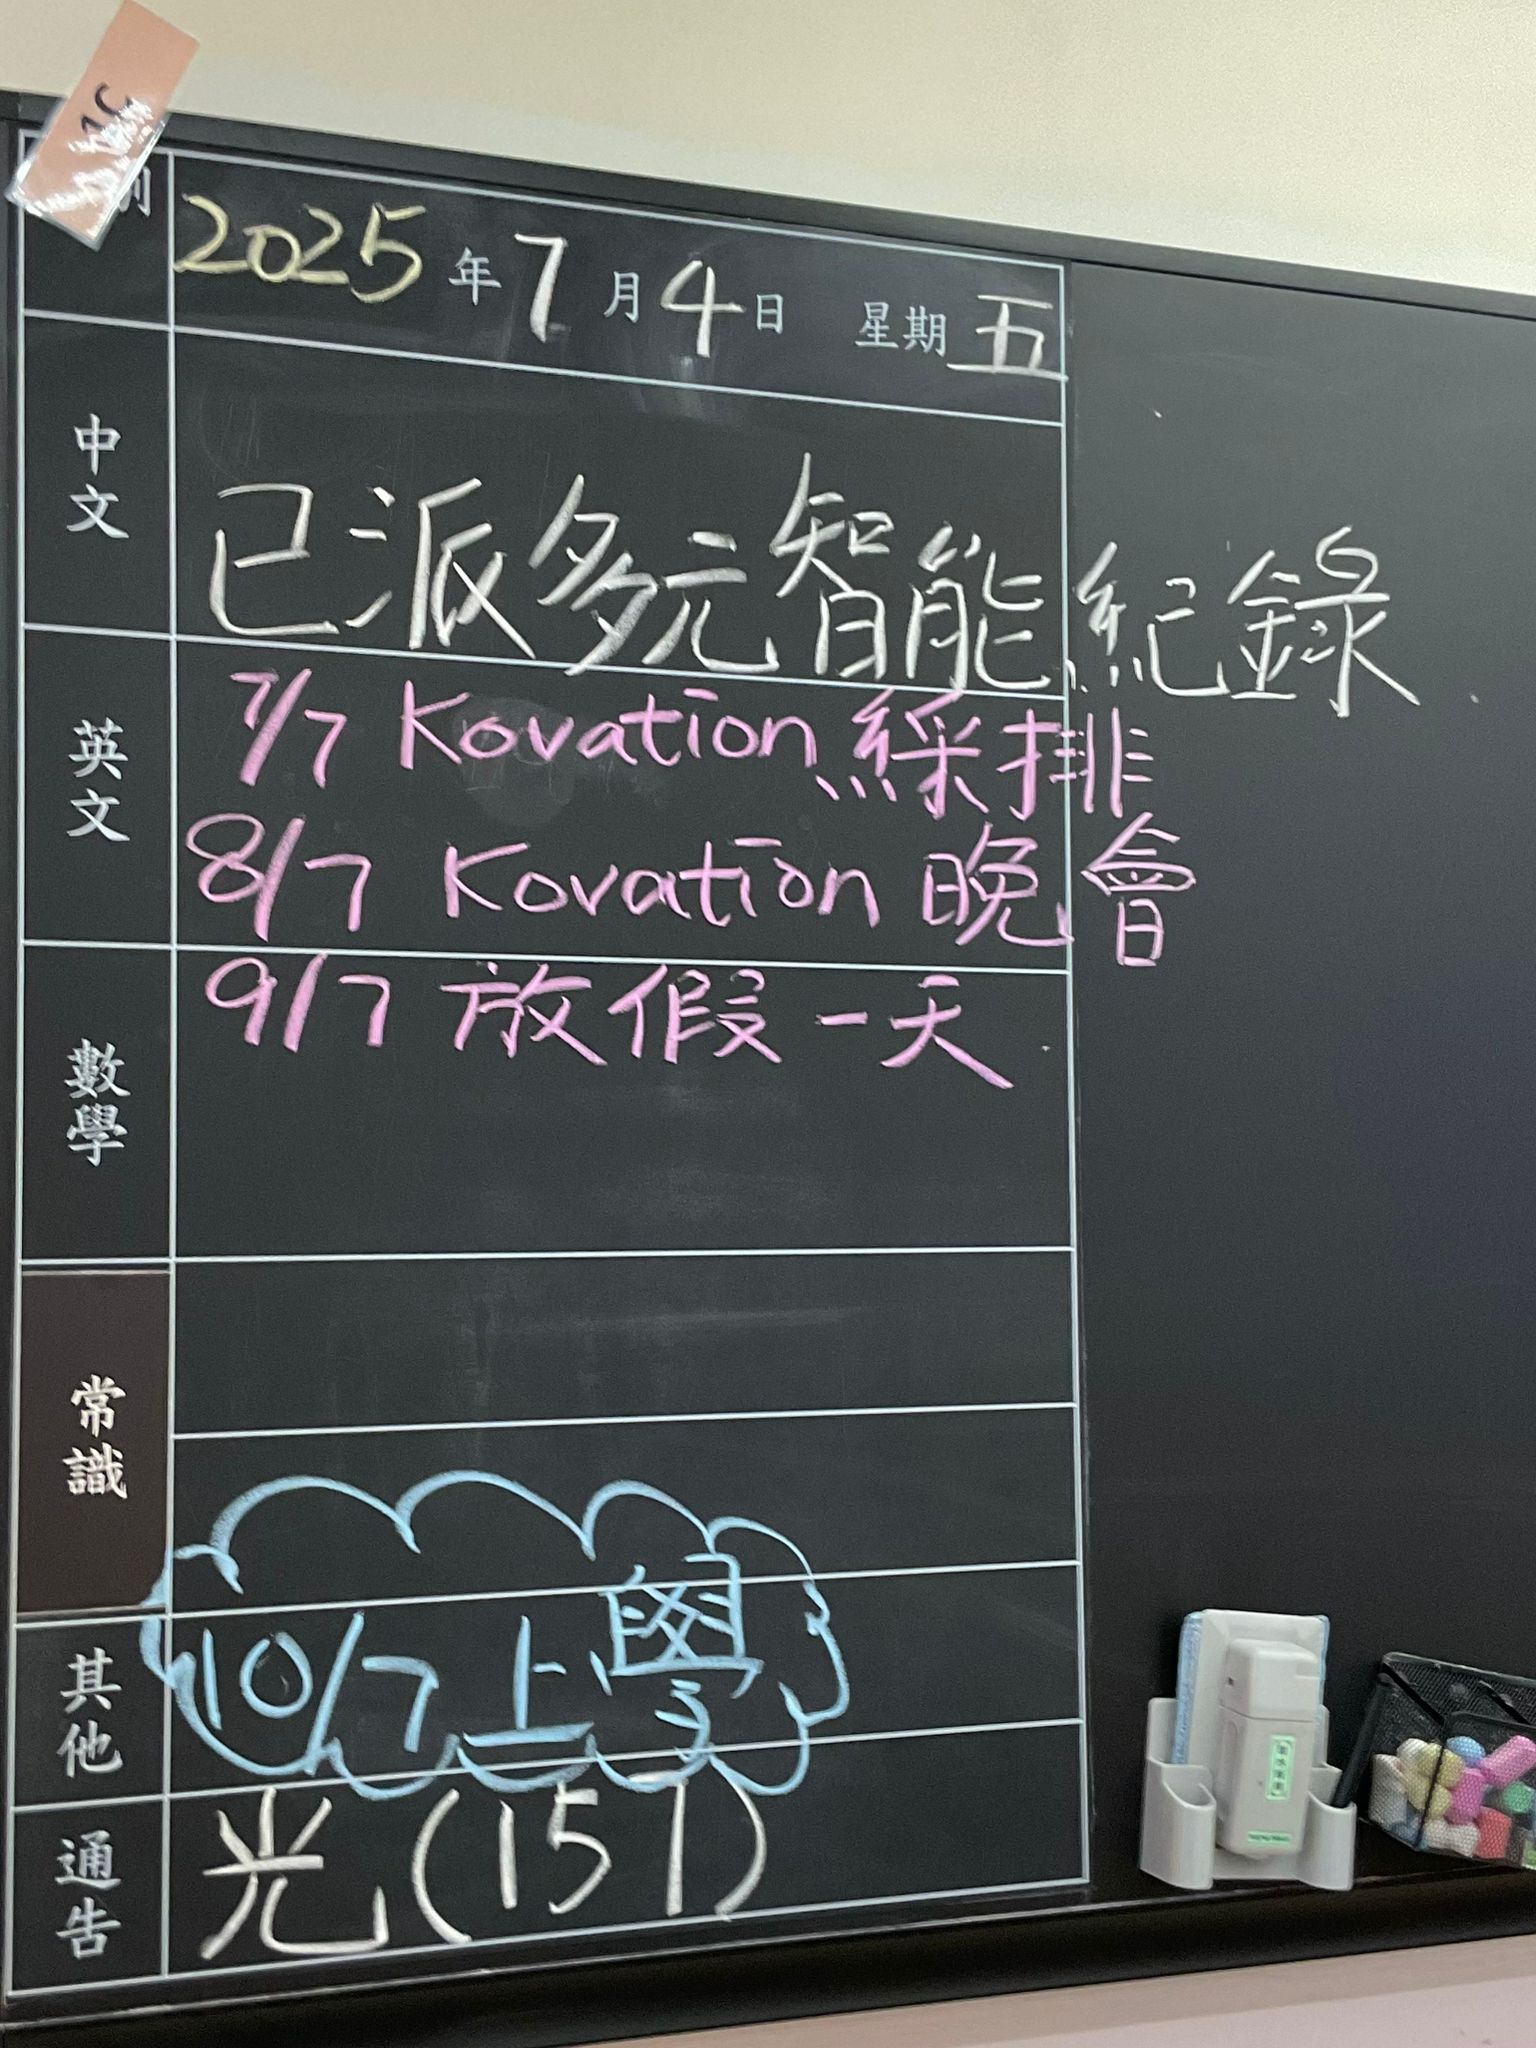 2025年7月4日 星期五
中文
已派多元智能紀錄
英文
7/7 Kovation 綵排
8/7 Kovation 晚會
數學
9/7 放假一天
常識
其他
10/7 上學
通告
光(157)